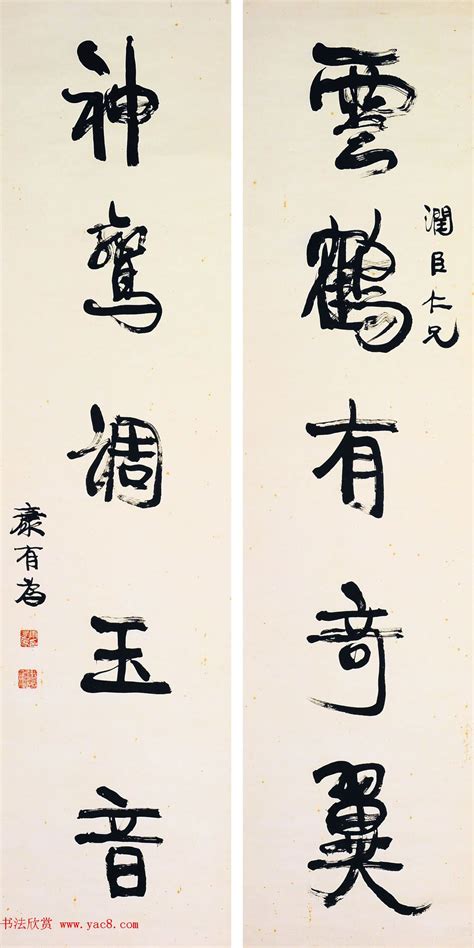 雲鶴有竒翼
潤臣仁兄
神鸞調玉音
康有為
书法欣赏 www.yac8.com